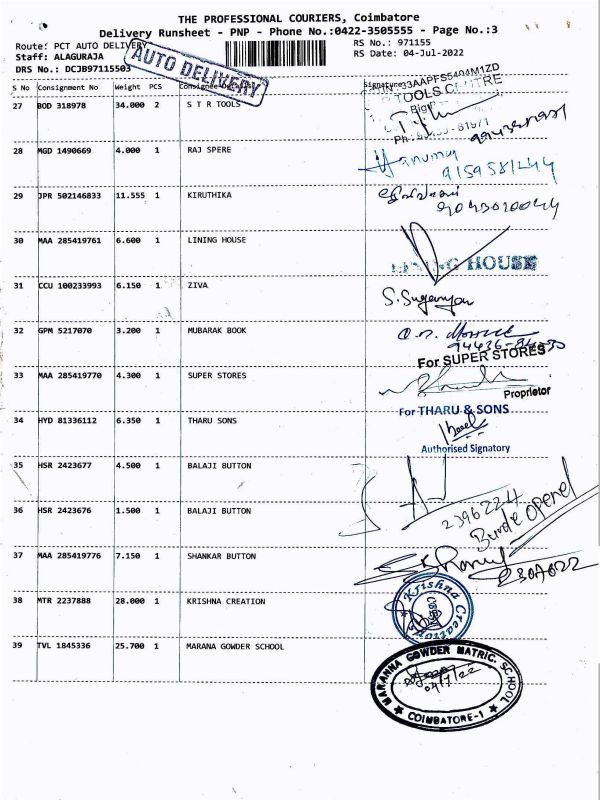 THE PROFESSIONAL COURIERS, Coimbatore
Delivery Runsheet - PNP - Phone No.:0422-3505555 - Page No.:3
Route: PCT AUTO DELIVERY RS No.: 971155
Staff: ALAGURAJA RS Date: 04-Jul-2022
DRS No.: DCJB97115503
AUTO DELIVERY
S No Consignment No Weight PCS Consignee Details Signature
27 BOD 318978 34.000 2 S T R TOOLS
28 MGD 1490669 4.000 1 RAJ SPERE
9159581244
29 JPR 502146833 11.555 1 KIRUTHIKA
30 MAA 285419761 6.600 1 LINING HOUSE
LINING HOUSE
31 CCU 100233993 6.150 1 ZIVA
32 GPM 5217070 3.200 1 MUBARAK BOOK
For SUPER STORES
33 MAA 285419770 4.300 1 SUPER STORES
Proprietor
For THARU & SONS
34 HYD 81336112 6.350 1 THARU SONS
Authorised Signatory
35 HSR 2423677 4.500 1 BALAJI BUTTON
36 HSR 2423676 1.500 1 BALAJI BUTTON
2396224
37 MAA 285419776 7.150 1 SHANKAR BUTTON
38 MTR 2237888 28.000 1 KRISHNA CREATION
Krishna Creation
39 TVL 1845336 25.700 1 MARANA GOWDER SCHOOL
MARANNA GOWDER MATRIC. SCHOOL
COIMBATORE-1